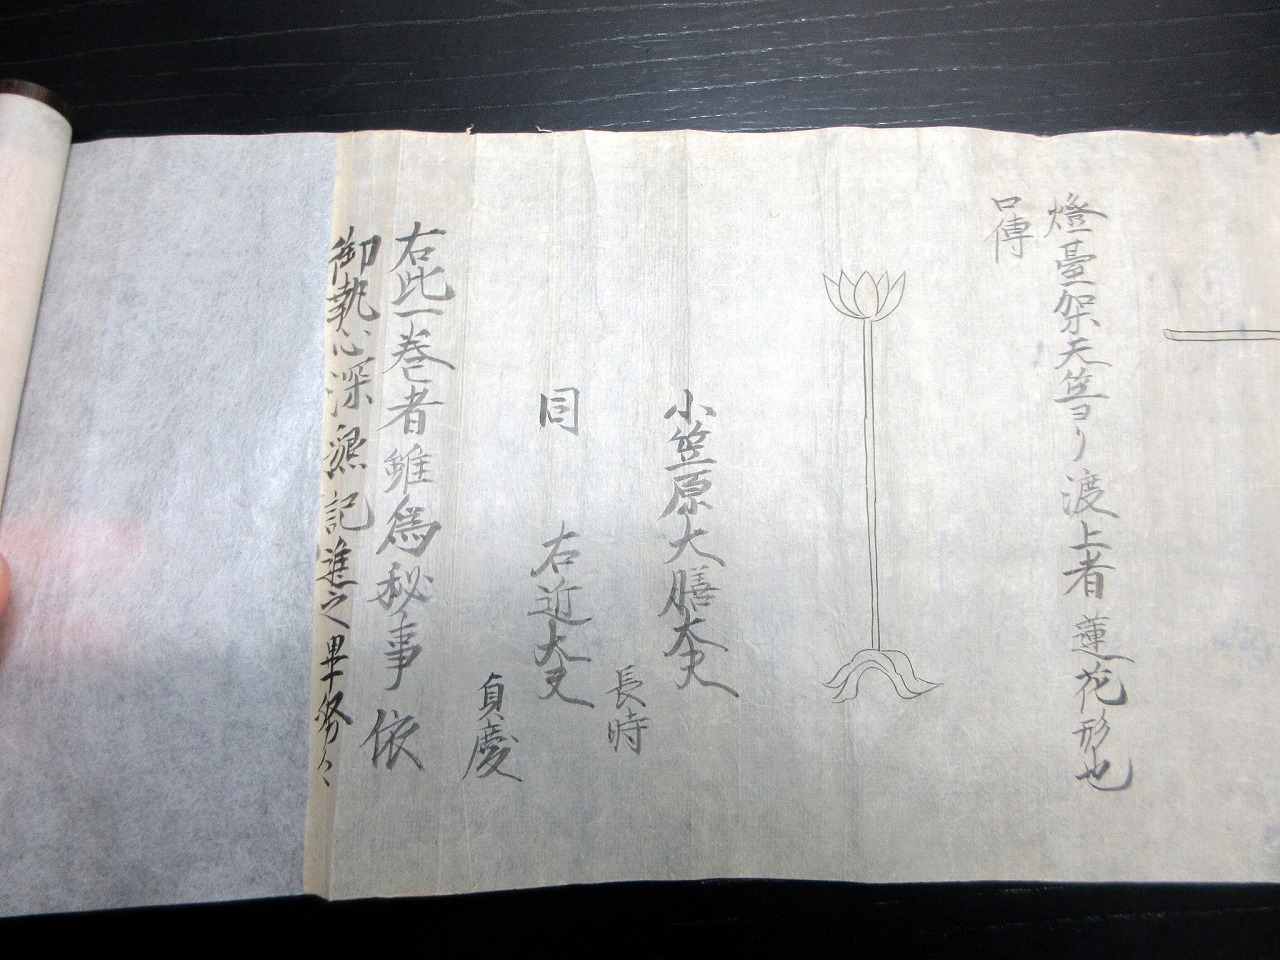 燈臺架天竺ヨリ渡上者蓮花形也
口傳
小笠原大膳大夫
長時
同 右近大夫
貞慶
右此一巻者雖爲秘事依
御執心深懇記進之畢努々